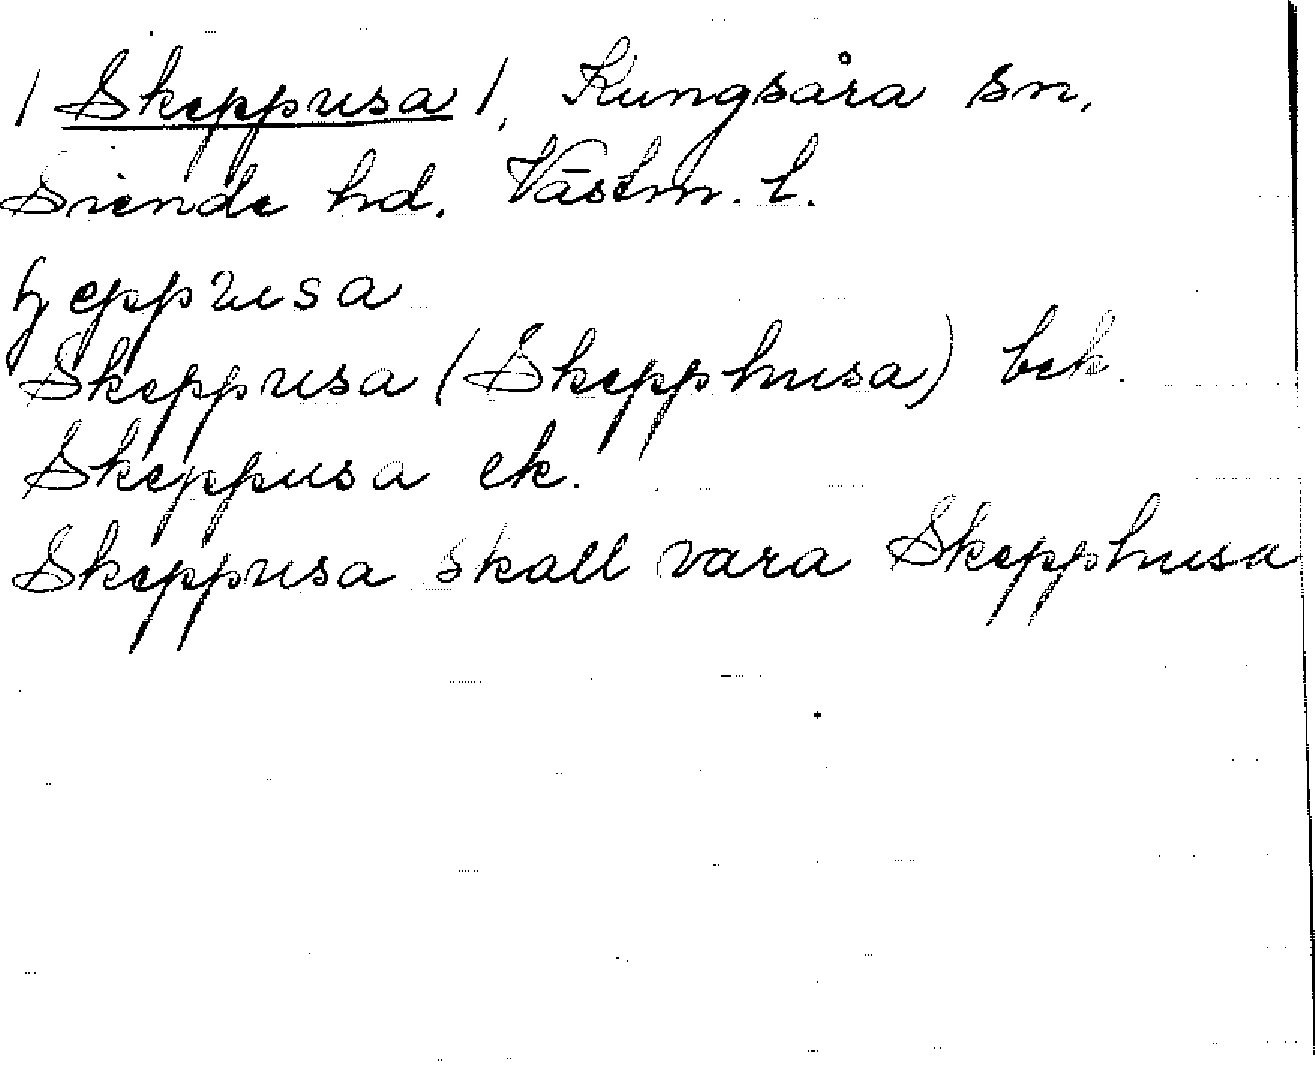 / Skeppusa /, Kungsåra sn,
Siende hd. Västm. l.
ɧeppusa
Skeppusa (Skepphusa) bek.
Skeppusa ek.
Skeppusa skall vara Skepphusa